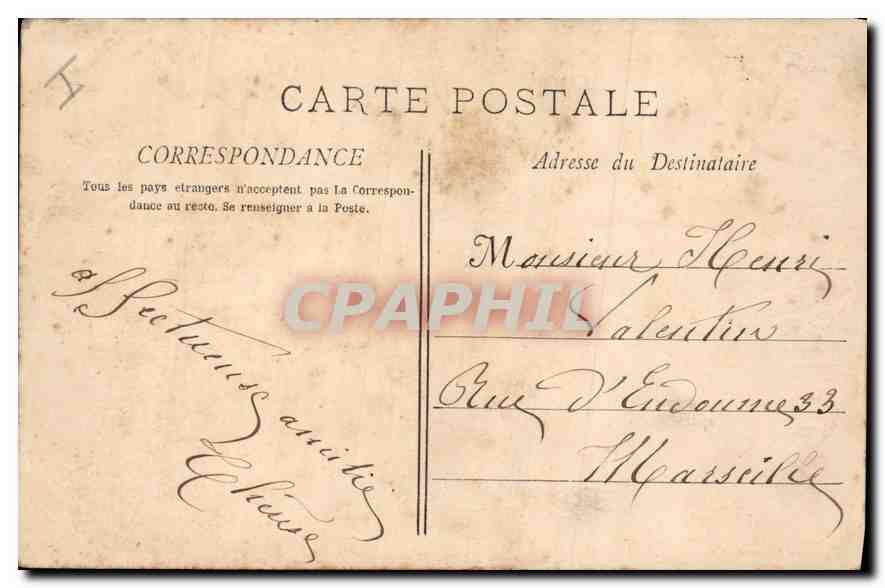 I
CARTE POSTALE
CORRESPONDANCE
Tous les pays etrangers n'acceptent pas La Correspon-
dance au recto. Se renseigner a la Poste.
Adresse du Destinataire
Monsieur Henri
Valentin
Rue d'Endoume 33
Marseille
affectueuse amitié
CPAPHIL